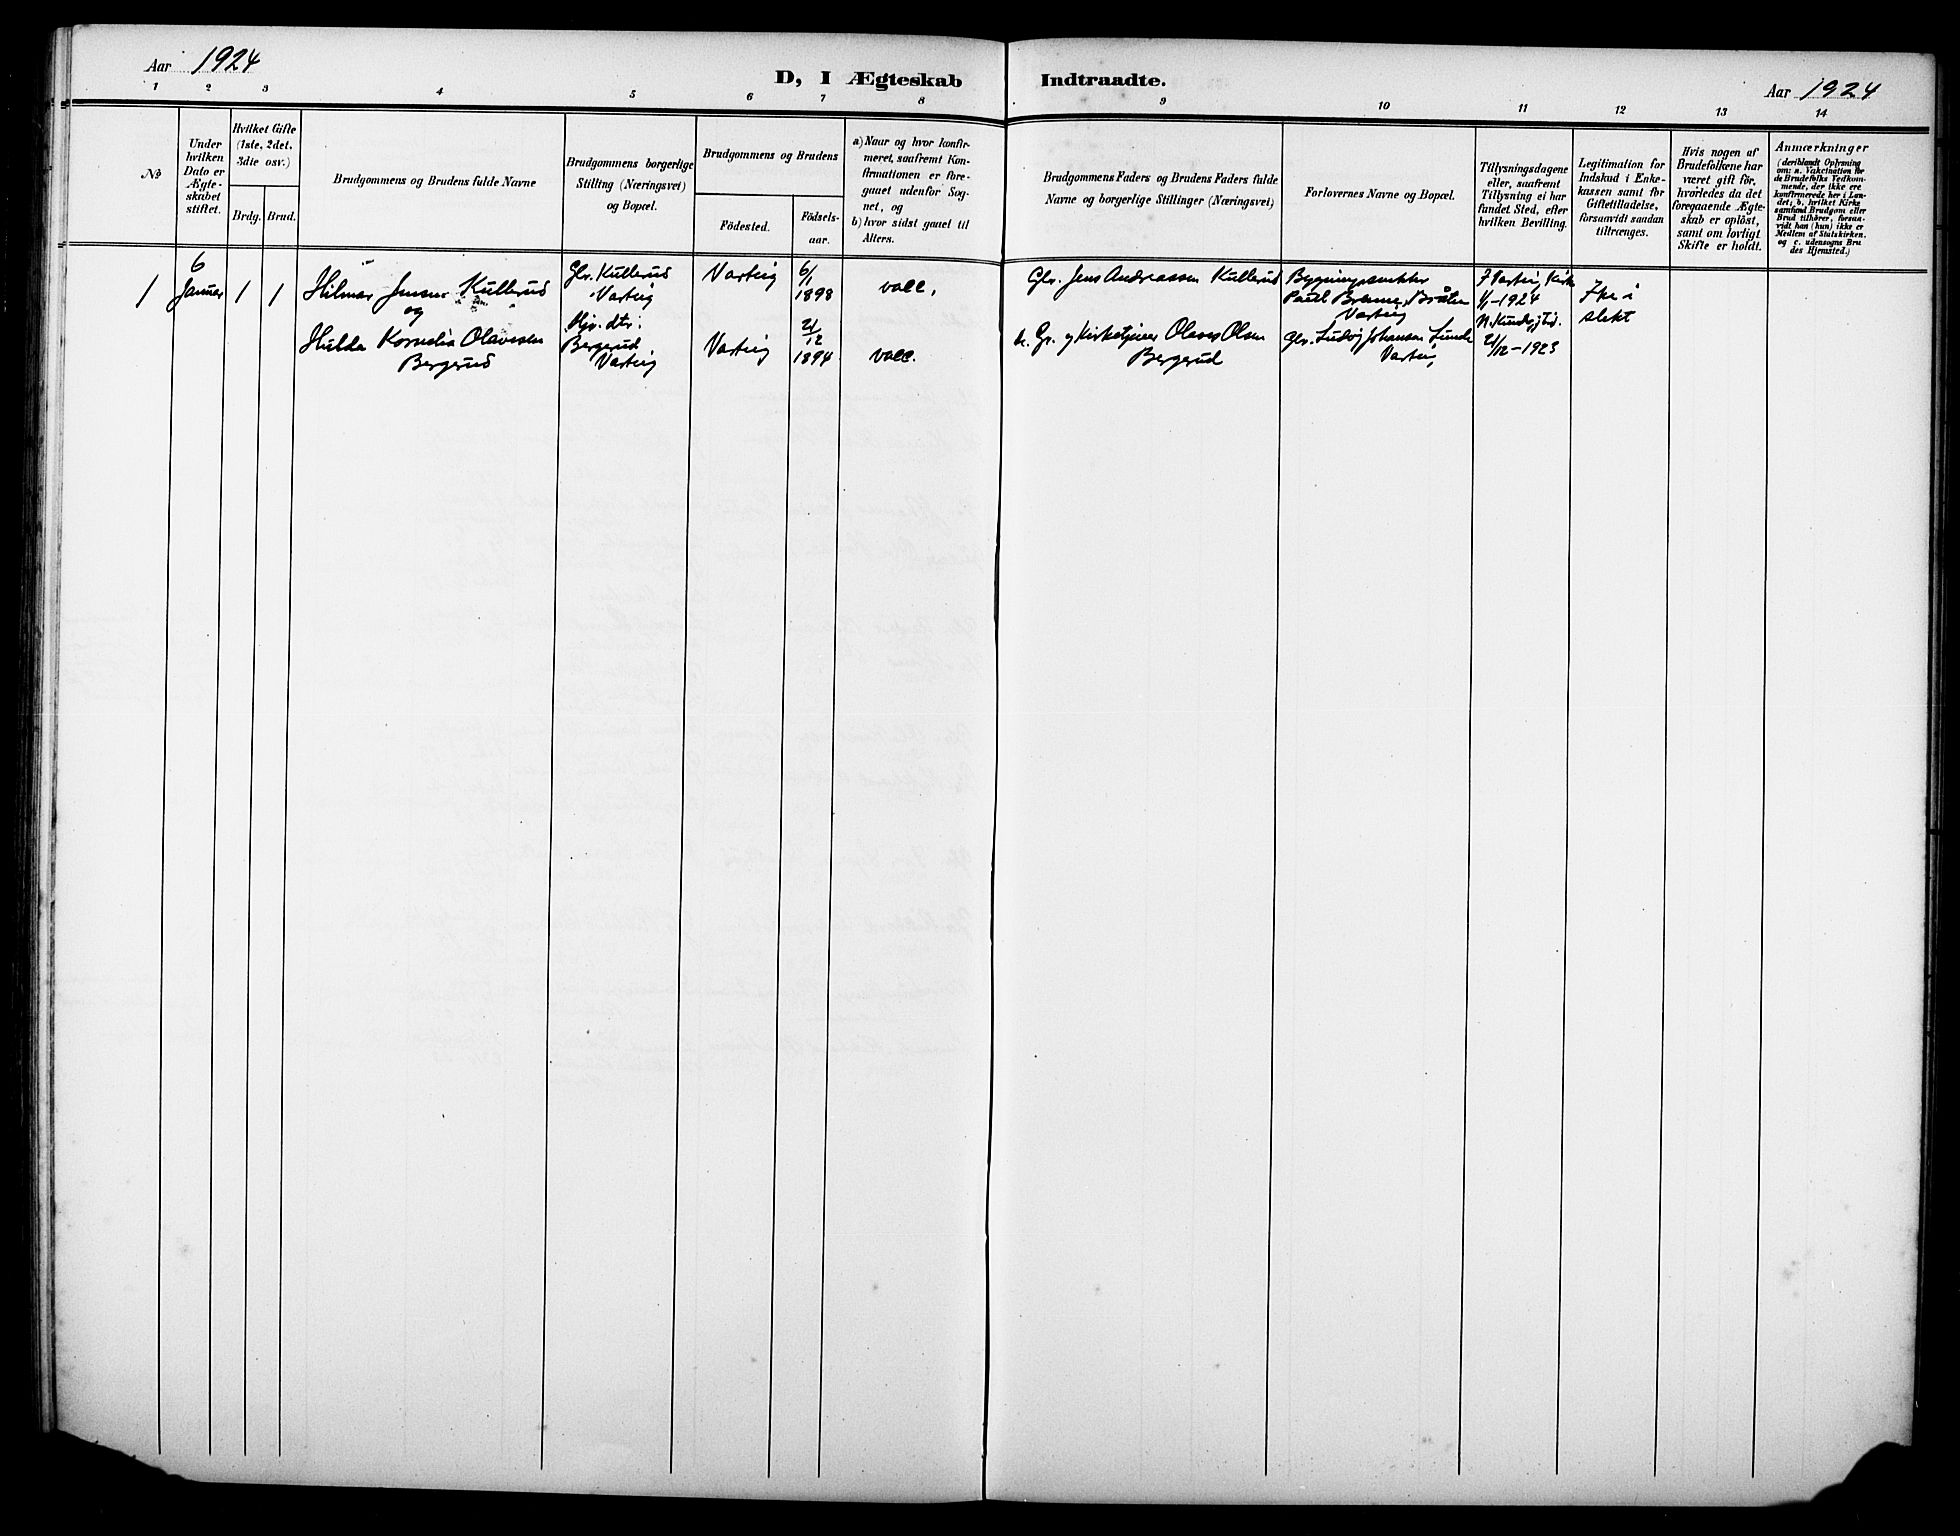 Aar 1924
D, I Ægteskab Indtraadte.
Aar 1924
1 2 3 4 5 6 7 8 9 10 11 12 13 14
No
Under
hvilken
Dato er
Ægte-
skabet
stiftet.
Hvilket Gifte
(1ste, 2det,
3die osv.)
Brdg. Brud.
Brudgommens og Brudens fulde Navne
Brudgommens borgerlige
Stilling (Næringsvei)
og Bopæl.
Brudgommens og Brudens
Födested.
Födsels-
aar.
a) Naar og hvor konfir-
meret, saafremt Kon-
firmationen er fore-
gaaet udenfor Sog-
net, og
b) hvor sidst gaaet til
Alters.
Brudgommens Faders og Brudens Faders fulde
Navne og borgerlige Stillinger (Næringsvei)
Forlovernes Navne og Bopæl.
Tillysningsdagene
eller, saafremt
Tillysning ei har
fundet Sted, efter
hvilken Bevilling.
Legitimation for
Indskud i Enke-
kassen samt for
Giftetilladelse,
forsaavidt saadan
tiltrænges.
Hvis nogen af
Brudefolkene har
været gift för,
hvorledes da det
foregaaende Ægte-
skab er oplöst,
samt om lovligt
Skifte er holdt.
Anmærkninger
(deriblandt Oplysning
om: a. Vakcination for
de Brudefolks Vedkom-
mende, der ikke ere
konfirmerede her i Lan-
det; b. hvilket Kirke-
samfund Brudgom eller
Brud tilhörer, forsaa-
vidt han (hun) ikke er
Medlem af Statskirken,
og c. udensogns Bru-
des Hjemsted.)
1
6
Januar
1 1
Hilmar Jensen Kullerud
og
Hulda Kornelia Olavesen
Bergerud
Gbr. Kullerud
Varteig
Hjv. dtr:
Bergerud
Varteig
Varteig
Varteig
6/1
1898
21/12
1894
vacc.
vacc.
Gbr. Jens Andreassen Kullerud
Gr. og Kirketjener Olaves Olsen
Bergerud
Bygningssnekker
Paul Bråten
Varteig
Gbr. Ludvig Johansen Lunde
Varteig
I Varteig Kirke
1/1-1924
N. Kundgj. tid.
21/12-1923
Ike i
slekt